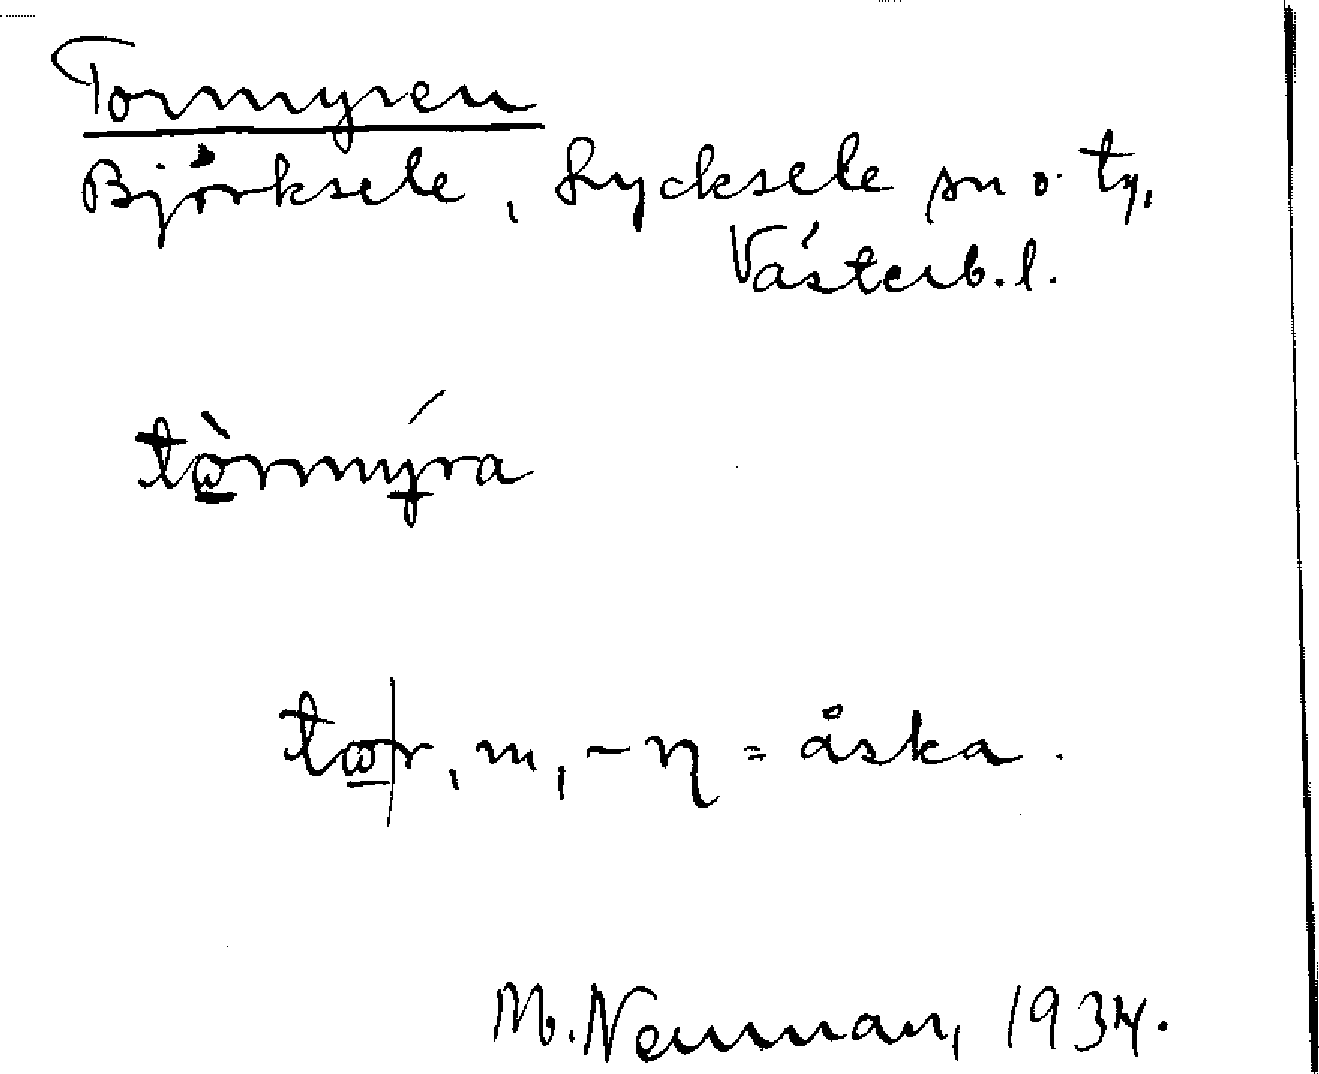 Tormyren
Björksele, Lycksele sn o. tg,
Västerb. l.
tòrmýra
to|r, m, -η = åska.
M. Neuman, 1934.